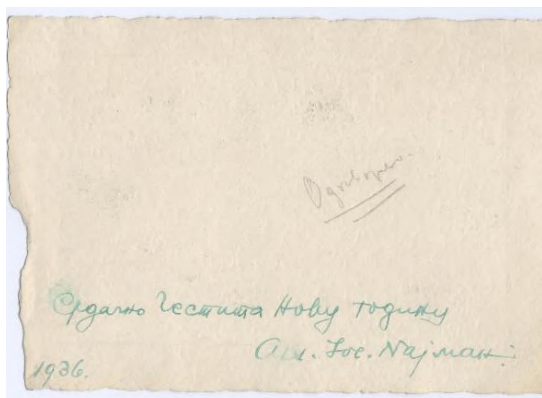 Одговорено.
Срдачно Честита Нову годину
Јос. Најман
1936.